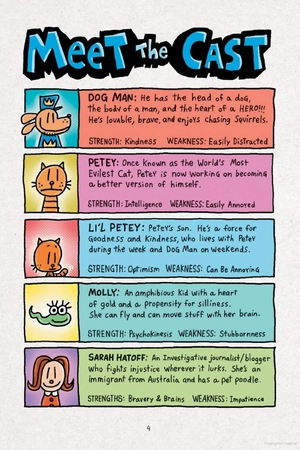 MEET THE CAST
DOG MAN: He has the head of a dog,
the body of a man, and the heart of a HERO!!!
He's lovable, brave, and enjoys chasing Squirrels.
STRENGTH: Kindness WEAKNESS: Easily Distracted
PETEY: Once known as the World's Most
Evilest Cat, Petey is now working on becoming
a better version of himself.
STRENGTH: Intelligence WEAKNESS: Easily Annoyed
LI'L PETEY: Petey's son. He's a force for
Goodness and Kindness, who lives with Petey
during the week and Dog Man on Weekends.
STRENGTH: Optimism WEAKNESS: Can Be Annoying
MOLLY: An amphibious kid with a heart
of gold and a propensity for silliness.
She can fly and can move stuff with her brain.
STRENGTH: Psychokinesis WEAKNESS: Stubbornness
SARAH HATOFF: An Investigative journalist/blogger
who fights injustice wherever it lurks. She's an
immigrant from Australia and has a pet poodle.
STRENGTHS: Bravery & Brains WEAKNESS: Impatience
4